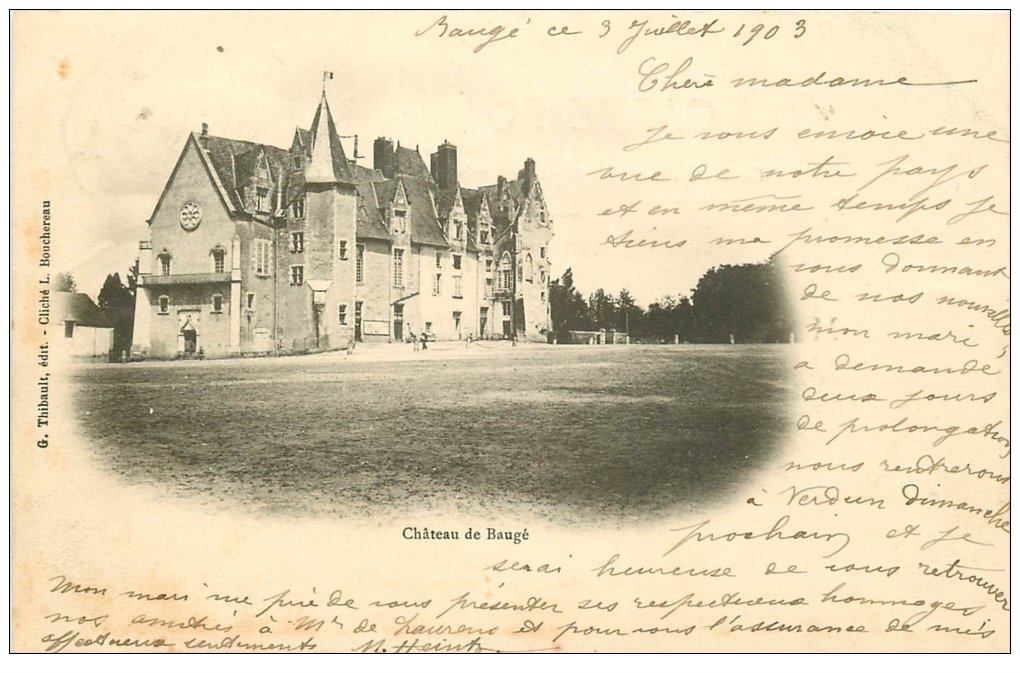 Baugé ce 3 Juillet 1903
Chère madame
Je vous envoie une
vue de notre pays
et en même temps je
tiens ma promesse en
vous donnant
de nos nouvelles,
mon mari
a demandé
deux jours
de prolongation
nous rentrerons
à Verdun Dimanche
prochain et je
serai heureuse de vous retrouver
Mon mari me prie de vous présenter ses respectueux hommages
nos amitiés à Mr de Laurens et pour vous l'assurance de mes
affectueux sentiments M. Heintz.
G. Thibault, édit. - Cliché L. Bouchereau
Château de Baugé